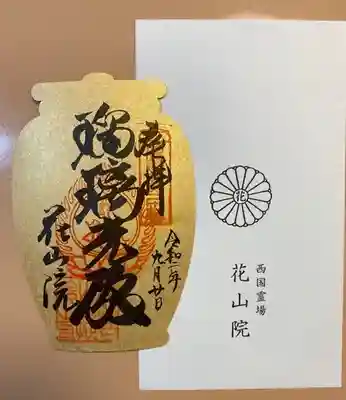 奉拝
瑠璃光殿
花山院
九月廿日
花
西国霊場
花山院